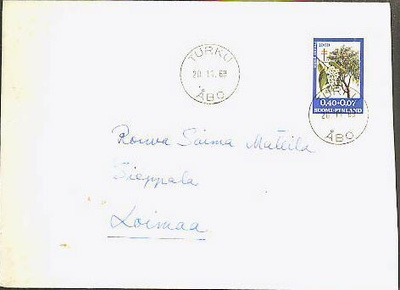 TURKU
20.11.69
ÅBO
1969
0,40+0,07
SUOMI-FINLAND
TURKU
20.11.69
ÅBO
Rouva Saima Mattila
Sieppala
Loimaa